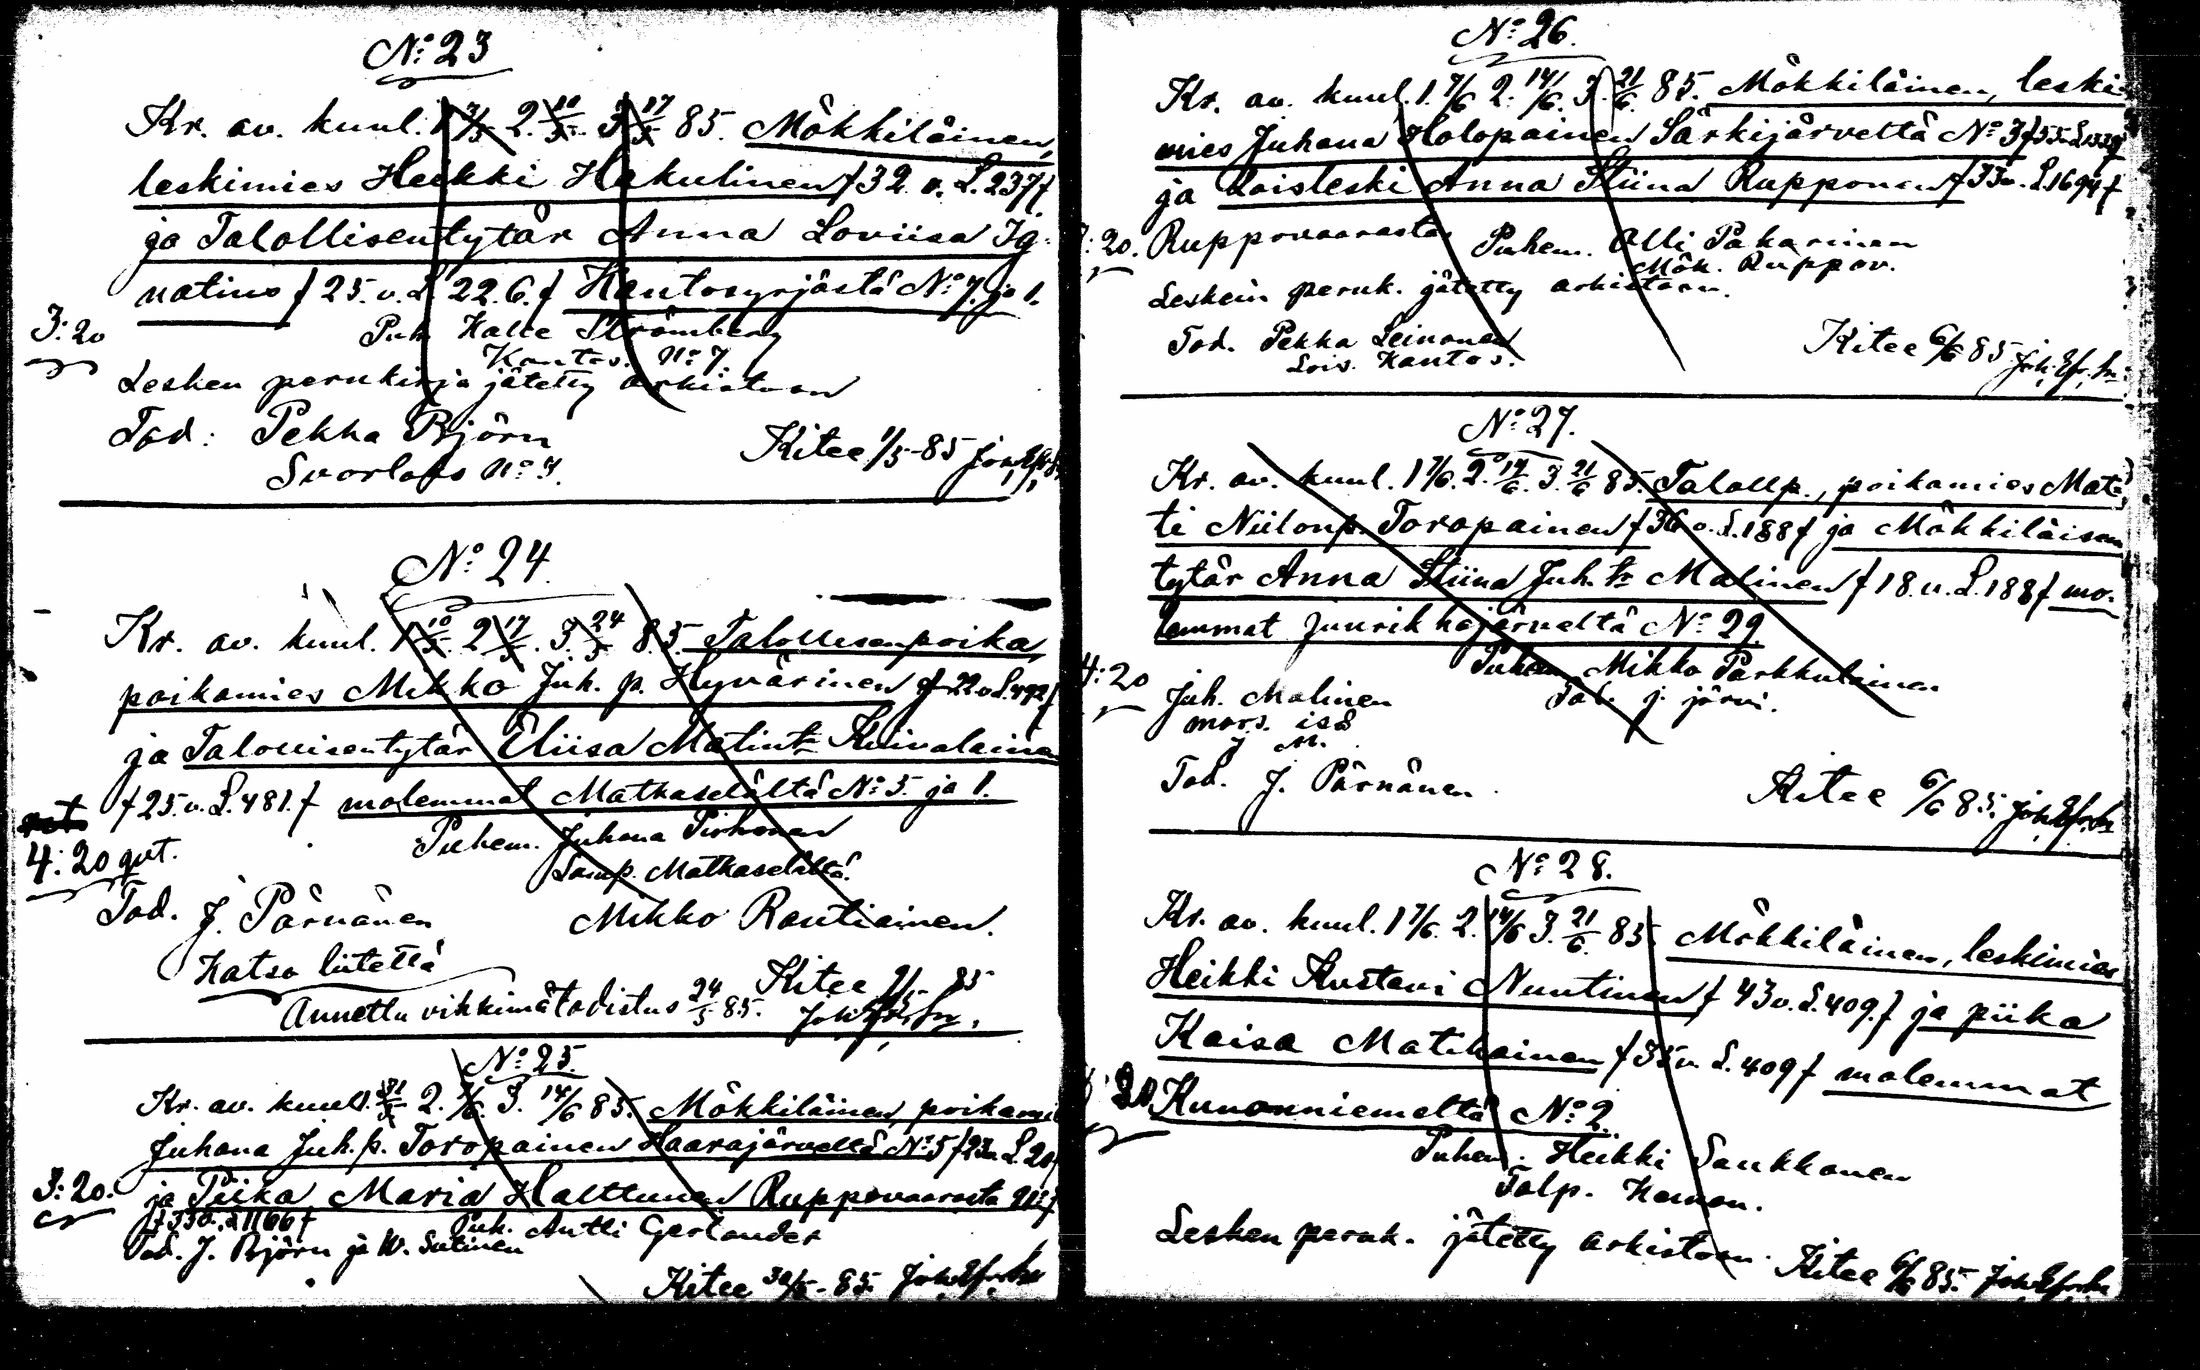 No: 23
Kr. av. kuul. 1 3/5 2. 10/5. 3 17/5 85. Mökkiläinen,
leskimies Heikki Hakulinen f 32 v. L. 237 f
ja Talollisentytär Anna Loviisa Ig-
natius f 25. v. L 22. 6. f Kantosyrjästä No 7. ja 1.
3: 20
Puh. Kalle Strömberg
Kantos. No 7.
Lesken perukirja jätetty arkistoon
Tod: Pekka Björn
Suorlaks No 4.
Kitee 1/5-85
No: 24
Kr. av. kuul. 1 10/5. 2 17/5. 3. 24/5 85. Talollisenpoika,
poikamies Mikko Juh. p. Hyvärinen f 22 v. L. 492 f
ja Talollisentytär Eliisa Matint: Kuivalainen
f 25. v. L. 481. f molemmat Matkaselältä No: 5. ja 1.
4: 20 qvt.
Puhem. Juhana Pirhonen
Matkaselältä.
Tod. J. Pärnänen
Mikko Rautiainen.
Katso liitettä
Kitee 85
Annettu vihkimätodistus 24/5 85.
No: 25.
Kr. av. kuul. 1. 31/5 2. 7/6. 3. 14/6 85. Mökkiläinen, poikami
Juhana Juh. p. Toropainen Haarajärveltä No: 5 f 23 v. L. 20
3: 20.
ja Piika Maria Halttunen Ruppovaarasta
f 33 v. L 1166 f
Puh. Antti Gerlander
Tod. J. Björn ja W. Sutinen
Kitee 30/5-85.
No: 26.
Kr. av. kuul. 1. 7/6 2. 14/6. 3. 21/6. 85. Mökkiläinen, leski-
mies Juhana Holopainen Särkijärveltä No: 3 f 55 v. L 1339
ja Loisleski Anna Stiina Rupponen f 33 v. L 1694 f
: 20.
Ruppovaarasta Puhem. Olli Pakarinen
Mök. Ruppov.
Leskein peruk. jätetty arkistoon.
Tod. Pekka Leinonen
Lois. Kantos.
Kitee 6/6 85
No: 27.
Kr. av. kuul. 1 7/6. 2. 14/6. 3. 21/6 85. Talollp., poikamies Mat-
ti Niilonp. Toropainen f 36 v. L. 188 f ja Mökkiläisen
tytär Anna Stiina Juh. tr Malinen f 18. v. L. 188 f mo-
lemmat Juurikkajärveltä No: 29
4: 20
Puhem. Mikko Parkkulainen
Tal. J. järvi.
Juh. Malinen
mors. isä
J M.
Tod. J. Pärnänen
Kitee 6/6 85.
No: 28.
Kr. av. kuul. 1 7/6. 2. 14/6 3. 21/6. 85. Mökkiläinen, leskimies
Heikki Kustavi Nuutinen f 43 v. L. 409. f ja piika
Kaisa Matikainen f 35 v. L. 409 f molemmat
: 20
Kunonniemeltä No: 2.
Puhem. Heikki Saukkonen
Talp.
Lesken peruk. jätetty arkistoon. Kitee 6/6 85.